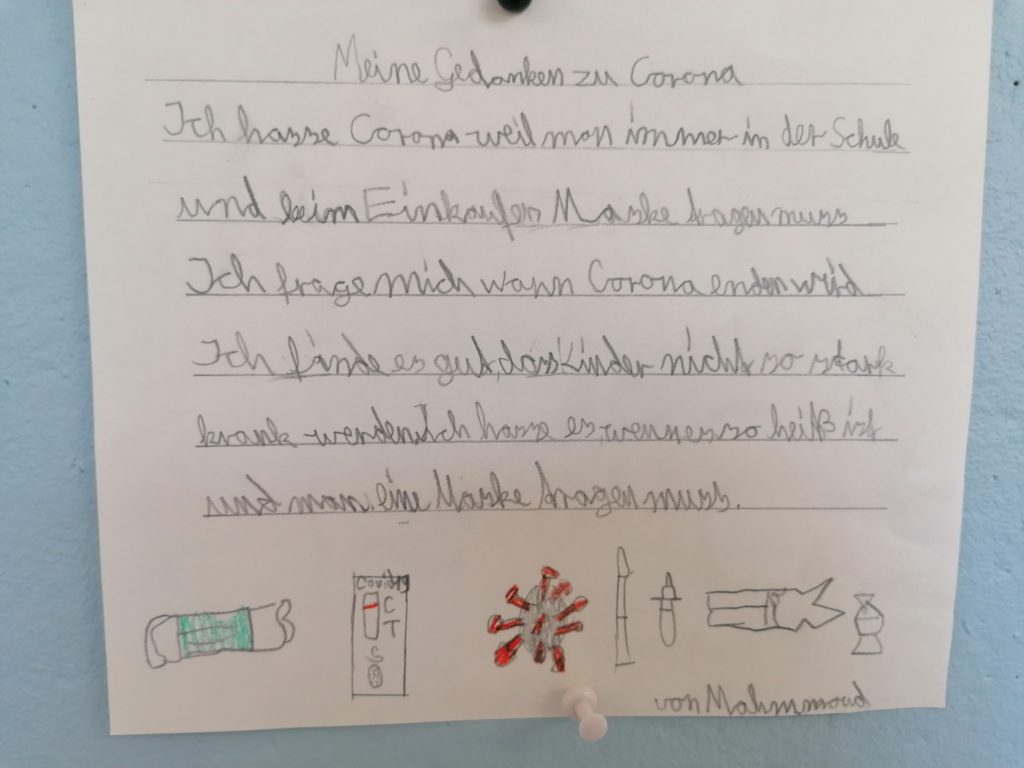 Meine Gedanken zu Corona
Ich hasse Corona weil man immer in der Schule
und beim Einkaufen Maske tragen muss
Ich frage mich wann Corona enden wird
Ich finde es gut, dass Kinder nicht so stark
krank werden. Ich hasse es, wenn es so heiß ist
und man eine Maske tragen muss.
Covid19
C
T
S
von Mahmmoud